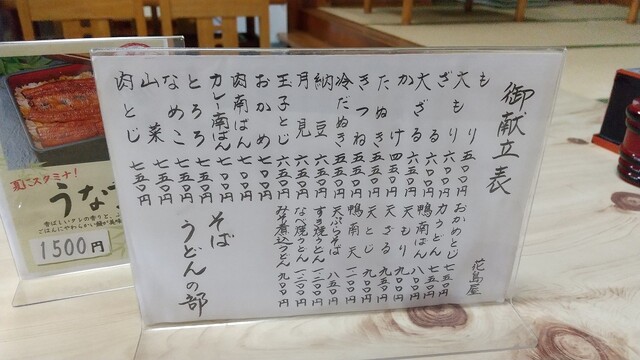 御献立表
花島屋
もり 五〇〇円
大もり 六〇〇円
ざる 六〇〇円
大ざる 七〇〇円
かけ 四五〇円
たぬき 五五〇円
きつね 五五〇円
冷だぬき 五五〇円
納豆 六五〇円
月見 五五〇円
玉子とじ 六五〇円
おかめ 七〇〇円
肉南ばん 七〇〇円
カレー南ばん 七五〇円
とろろ 七五〇円
なめこ 七五〇円
山菜 七五〇円
肉とじ 七五〇円
おかめとじ 七五〇円
力うどん 七五〇円
鴨南ばん 八〇〇円
天もり 九〇〇円
天ざる 九五〇円
天とじ 九五〇円
鴨南天 一〇〇〇円
天ぷらそば 八五〇円
すき焼うどん 一一〇〇円
なべ焼うどん 一一〇〇円
みそ煮込うどん 九〇〇円
そば
うどんの部
夏にスタミナ!
うな
香ばしいタレの香りと、
ごはんにやわらかい鰻が美味
1500円